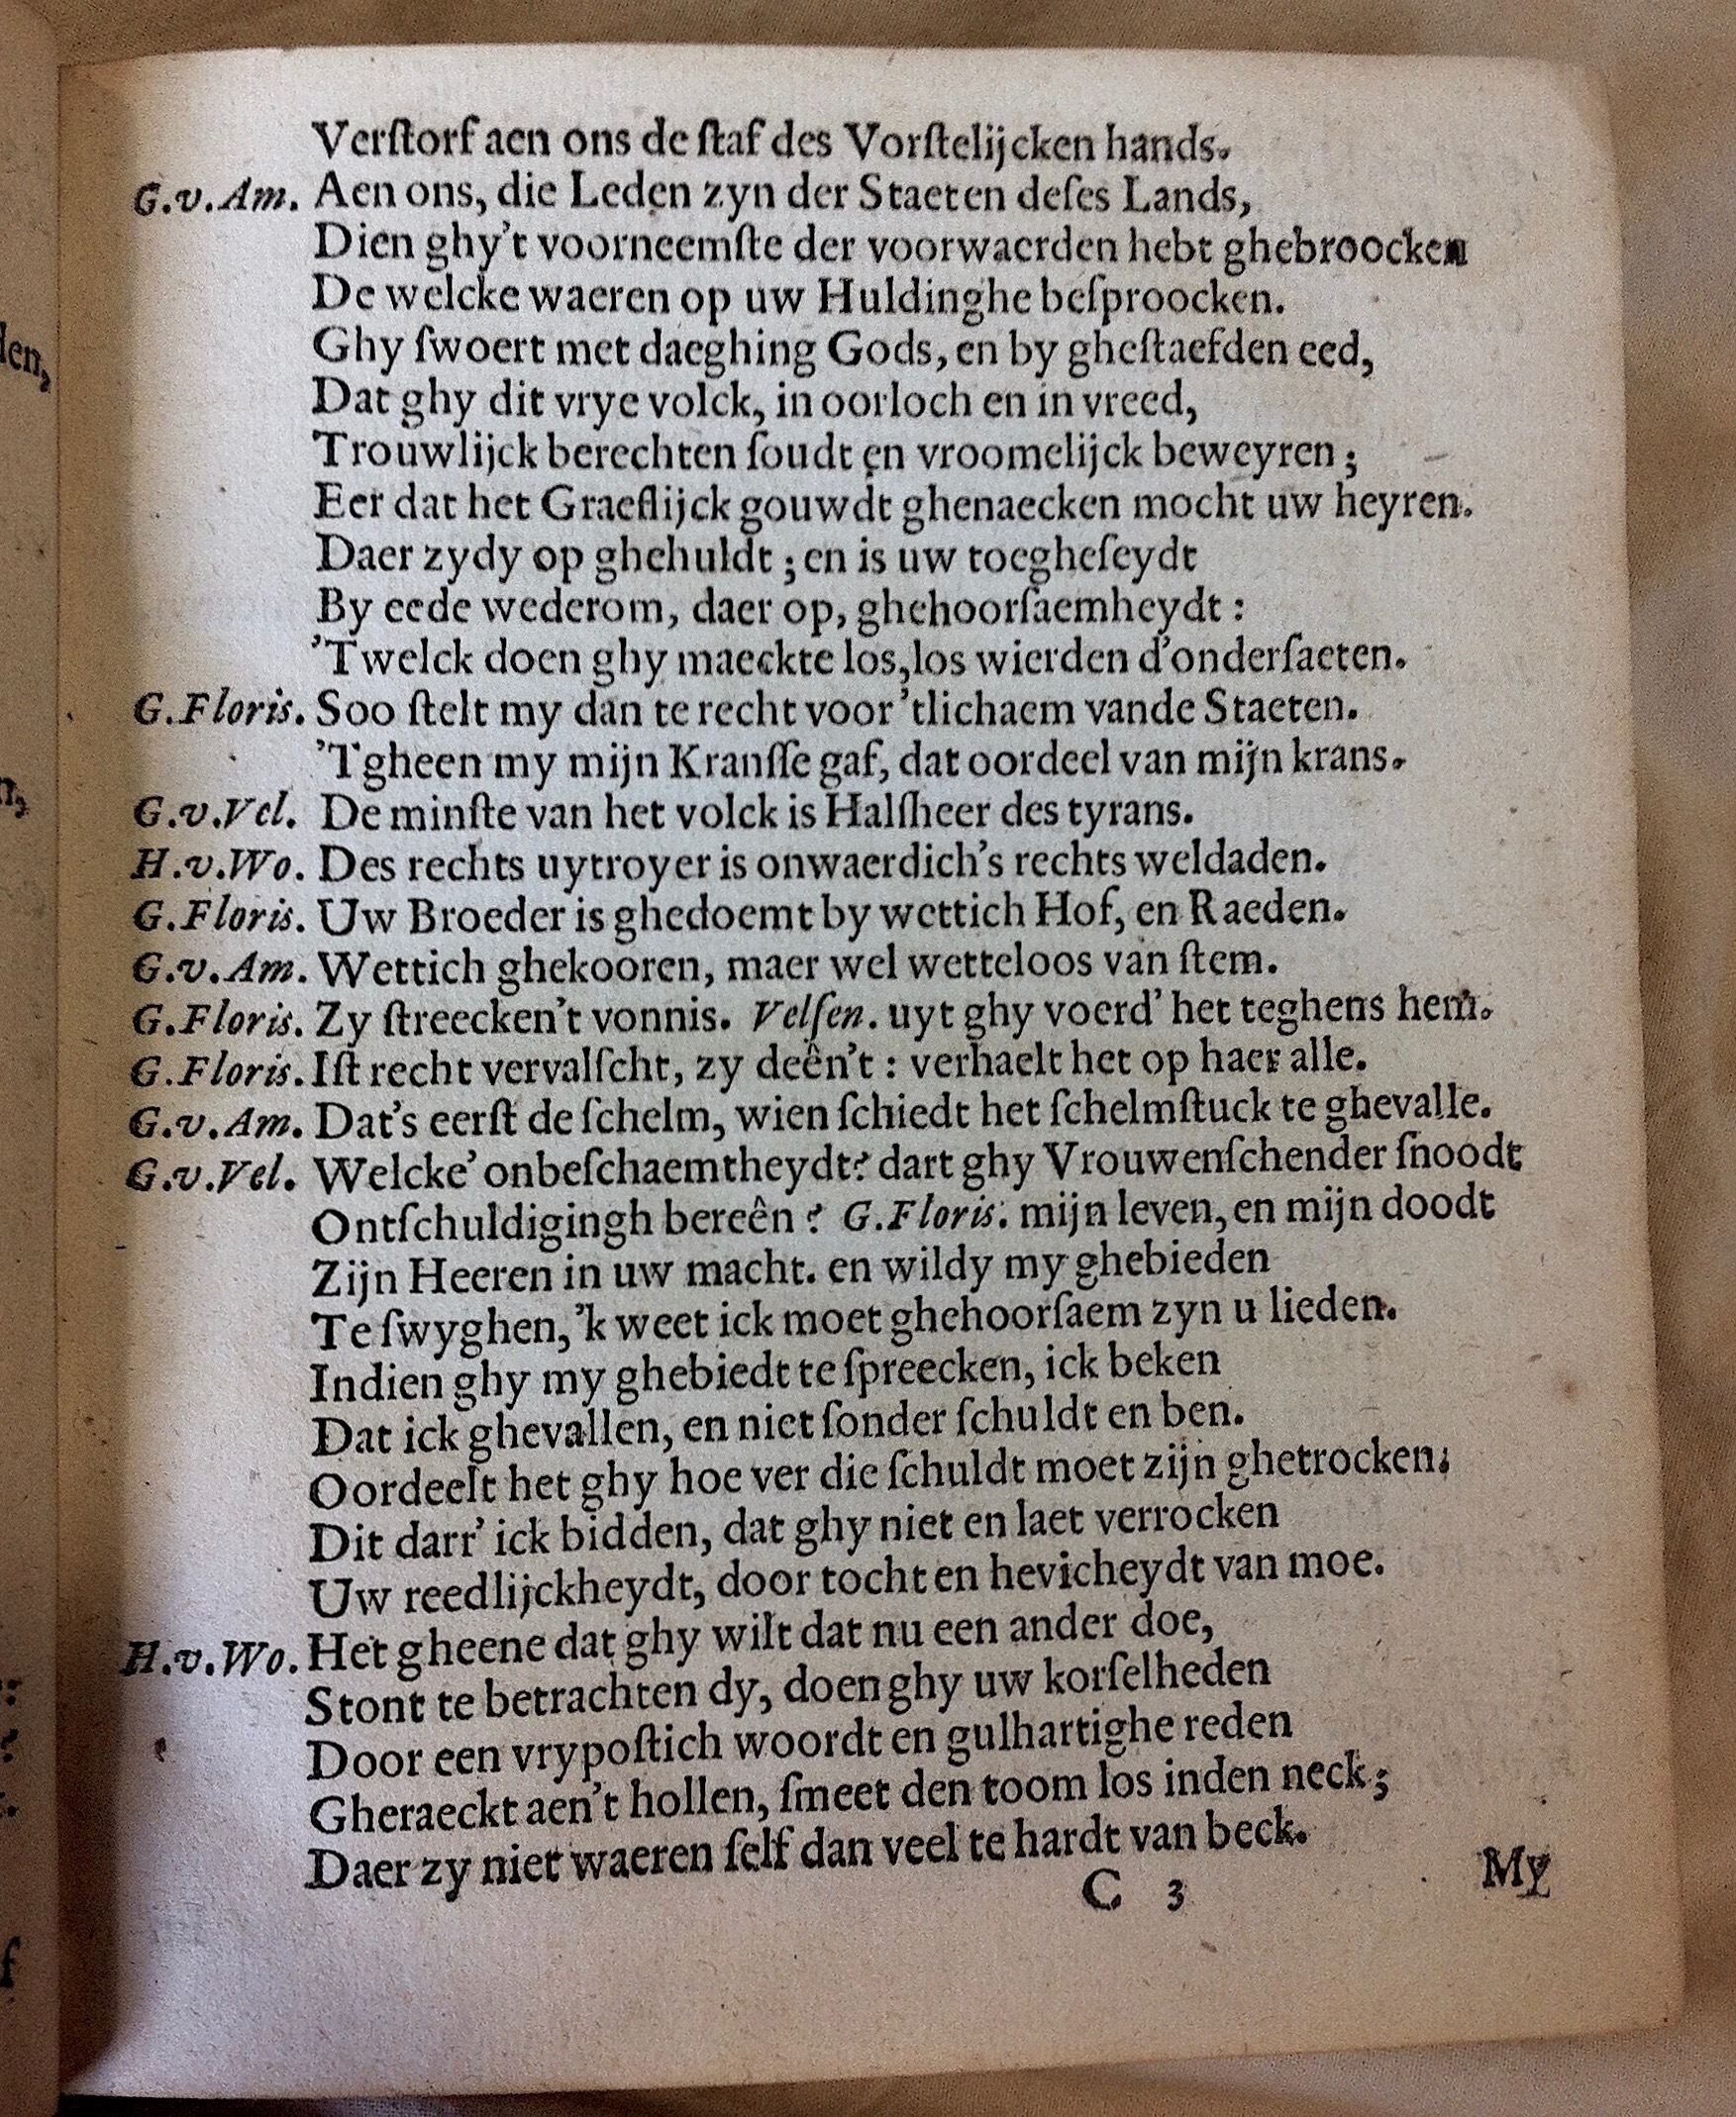 Verſtorf aen ons de ſtaf des Vorſtelijcken hands.
G.v.Am. Aen ons, die Leden zyn der Staeten deſes Lands,
Dien ghy't voorneemſte der voorwaerden hebt ghebroocken
De welcke waeren op uw Huldinghe beſproocken.
Ghy ſwoert met daeghing Gods, en by gheſtaefden eed,
Dat ghy dit vrye volck, in oorloch en in vreed,
Trouwlijck berechten ſoudt en vroomelijck beweyren;
Eer dat het Graeflijck gouwdt ghenaecken mocht uw heyren.
Daer zydy op ghehuldt; en is uw toegheſeydt
By eede wederom, daer op, ghehoorſaemheydt:
'Twelck doen ghy maeckte los, los wierden d'onderſaeten.
G.Floris. Soo ſtelt my dan te recht voor 'tlichaem vande Staeten.
'Tgheen my mijn Kranſſe gaf, dat oordeel van mijn krans.
G.v.Vel. De minſte van het volck is Halſheer des tyrans.
H.v.Wo. Des rechts uytroyer is onwaerdich's rechts weldaden.
G.Floris. Uw Broeder is ghedoemt by wettich Hof, en Raeden.
G.v.Am. Wettich ghekooren, maer wel wetteloos van ſtem.
G.Floris. Zy ſtreecken't vonnis. Velſen. uyt ghy voerd' het teghens hem.
G.Floris. Iſt recht vervalſcht, zy deên't: verhaelt het op haer alle.
G.v.Am. Dat's eerſt de ſchelm, wien ſchiedt het ſchelmſtuck te ghevalle.
G.v.Vel. Welcke' onbeſchaemtheydt? dart ghy Vrouwenſchender ſnoodt
Ontſchuldigingh bereên? G.Floris. mijn leven, en mijn doodt
Zijn Heeren in uw macht. en wildy my ghebieden
Te ſwyghen, 'k weet ick moet ghehoorſaem zyn u lieden.
Indien ghy my ghebiedt te ſpreecken, ick beken
Dat ick ghevallen, en niet ſonder ſchuldt en ben.
Oordeelt het ghy hoe ver die ſchuldt moet zijn ghetrocken;
Dit darr' ick bidden, dat ghy niet en laet verrocken
Uw reedlijckheydt, door tocht en hevicheydt van moe.
H.v.Wo. Het gheene dat ghy wilt dat nu een ander doe,
Stont te betrachten dy, doen ghy uw korſelheden
Door een vrypoſtich woordt en gulhartighe reden
Gheraeckt aen't hollen, ſmeet den toom los inden neck;
Daer zy niet waeren ſelf dan veel te hardt van beck.
C 3
My